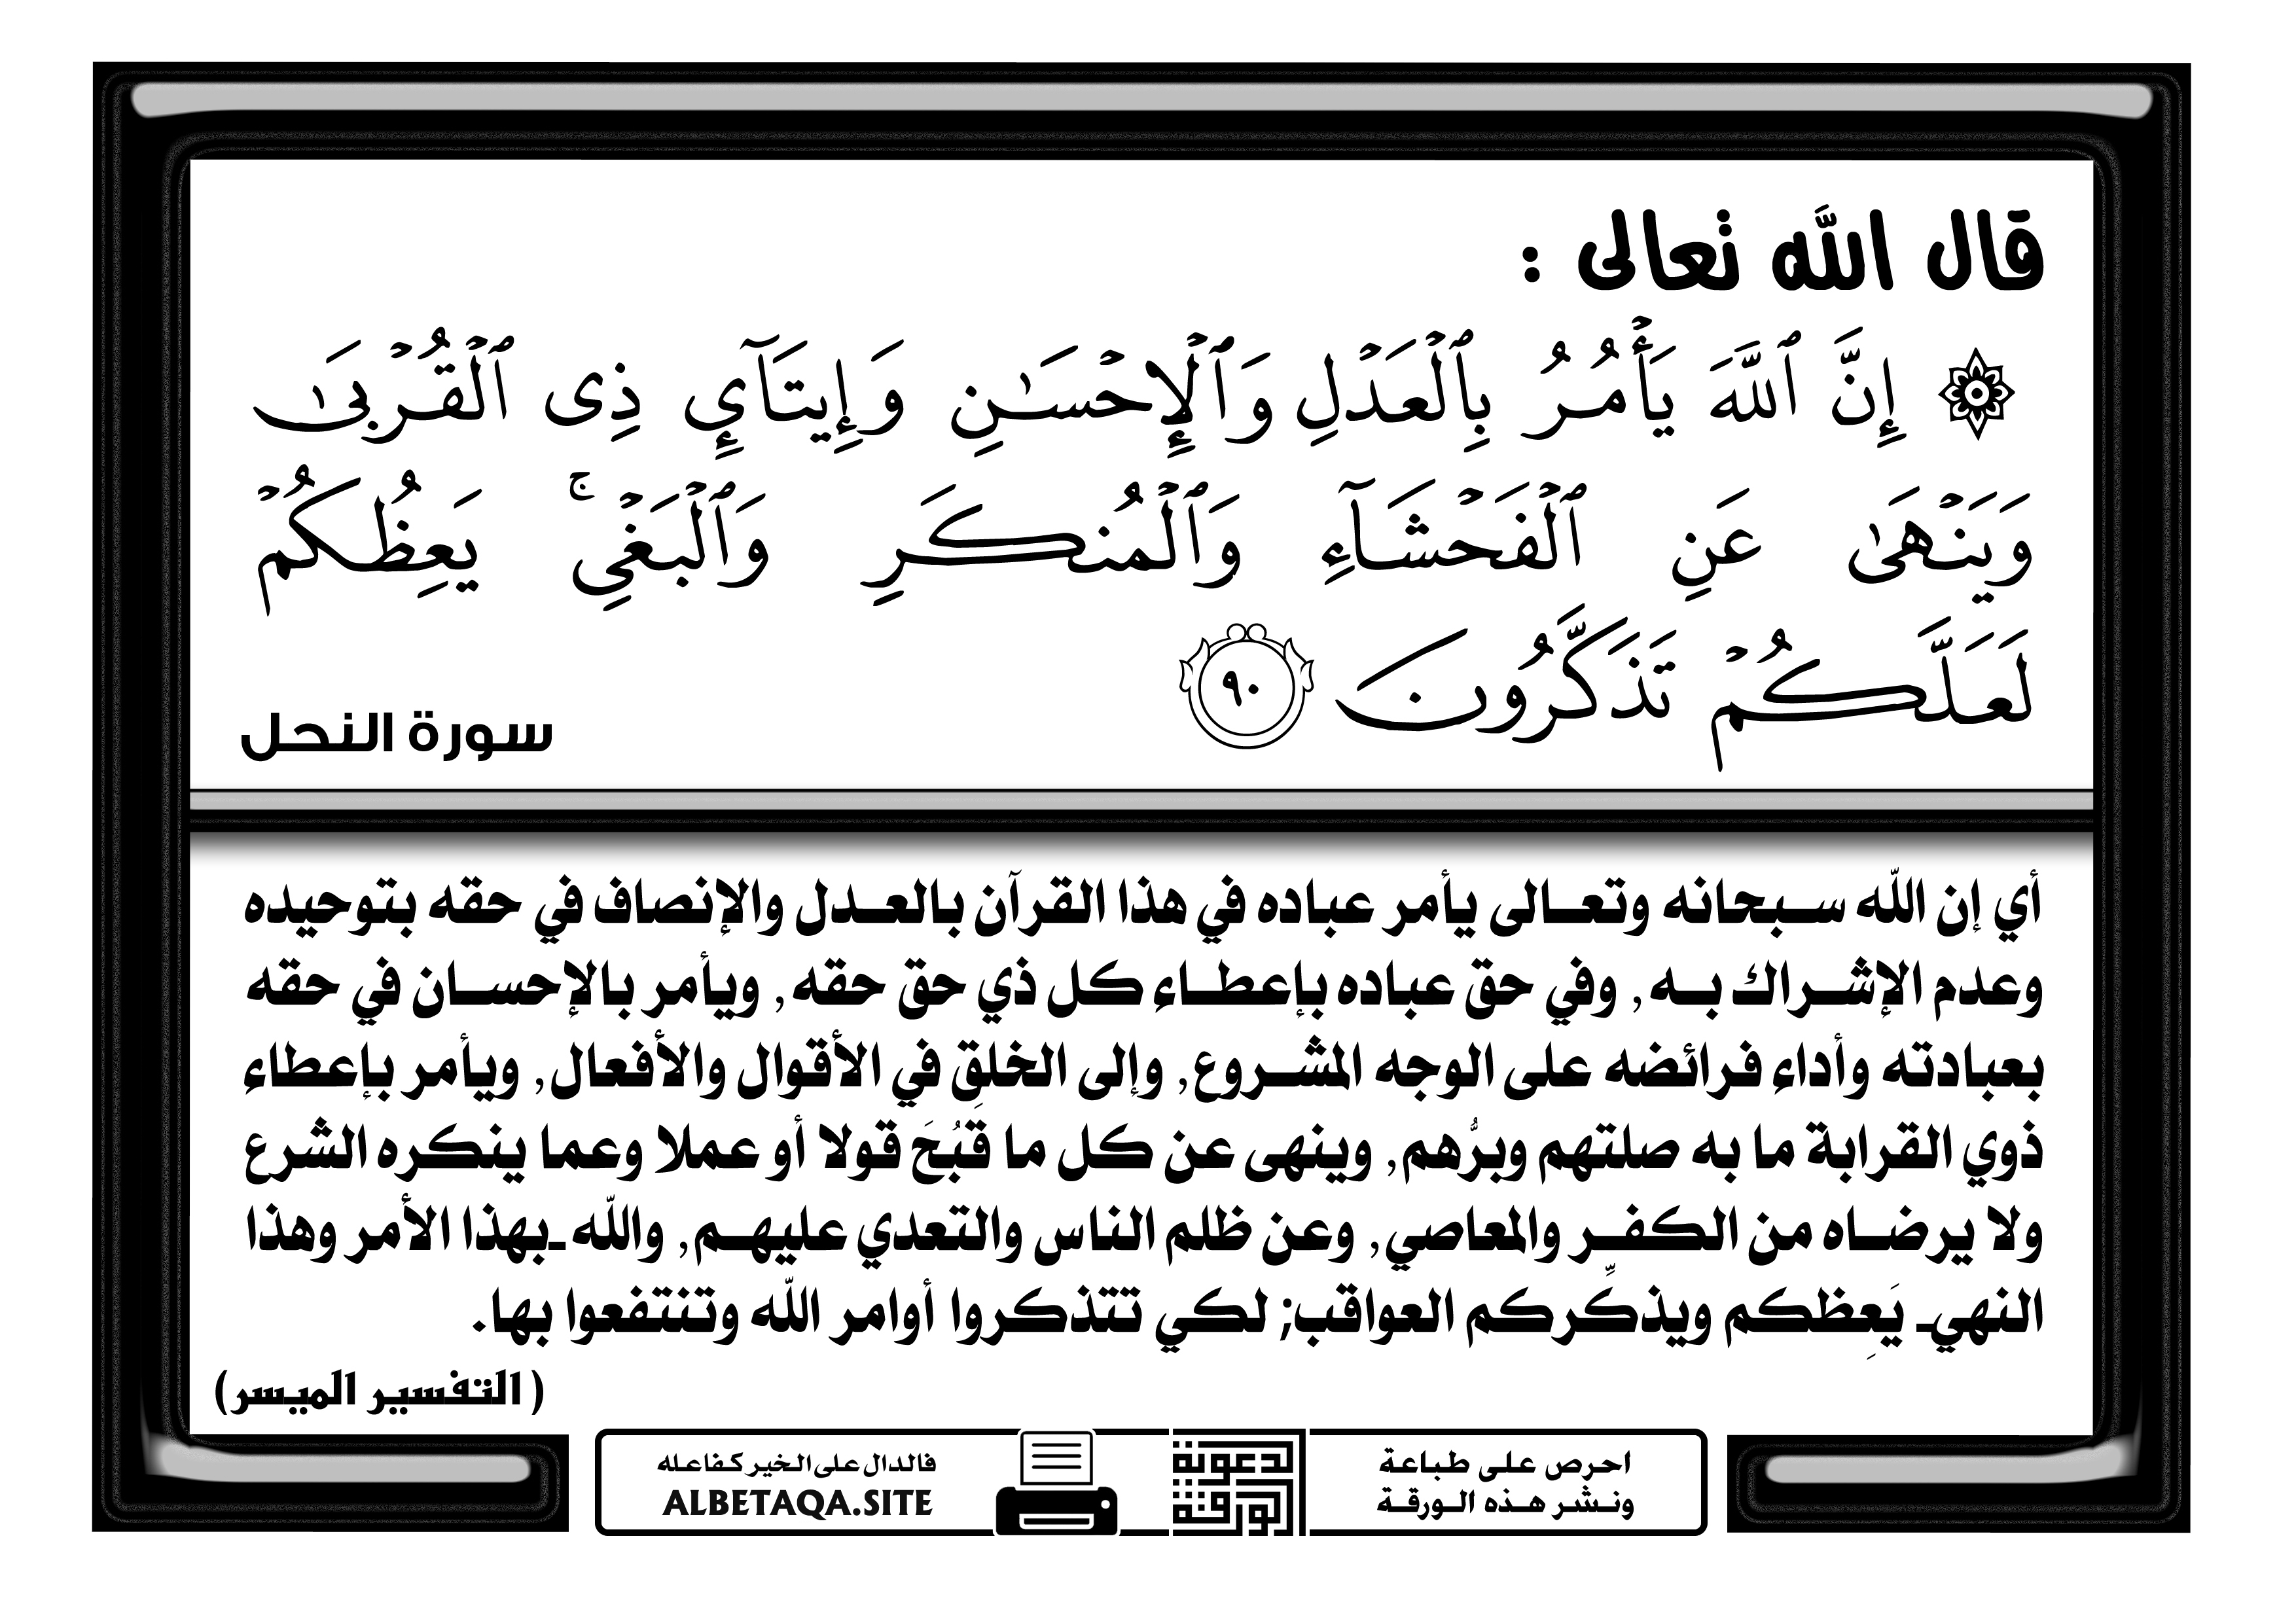 قال الله تعالى :
۞ إِنَّ ٱللَّهَ يَأۡمُرُ بِٱلۡعَدۡلِ وَٱلۡإِحۡسَٰنِ وَإِيتَآيِٕ ذِى ٱلۡقُرۡبَىٰ
وَيَنۡهَىٰ عَنِ ٱلۡفَحۡشَآءِ وَٱلۡمُنكَرِ وَٱلۡبَغۡيِۚ يَعِظُكُمۡ
لَعَلَّكُمۡ تَذَكَّرُونَ ٩٠
سورة النحل
أي إن الله سبحانه وتعالى يأمر عباده في هذا القرآن بالعدل والإنصاف في حقه بتوحيده
وعدم الإشراك به, وفي حق عباده بإعطاء كل ذي حق حقه, ويأمر بالإحسان في حقه
بعبادته وأداء فرائضه على الوجه المشروع, وإلى الخلق في الأقوال والأفعال, ويأمر بإعطاء
ذوي القرابة ما به صلتهم وبرُّهم, وينهى عن كل ما قَبُحَ قولا أو عملا وعما ينكره الشرع
ولا يرضاه من الكفر والمعاصي, وعن ظلم الناس والتعدي عليهم, والله ـبهذا الأمر وهذا
النهيـ يَعِظكم ويذكِّركم العواقب; لكي تتذكروا أوامر الله وتنتفعوا بها.
( التفسير الميسر)
احرص على طباعة
ونشر هذه الورقة
الدعوية
الورقة
فالدال على الخير كفاعله
ALBETAQA.SITE